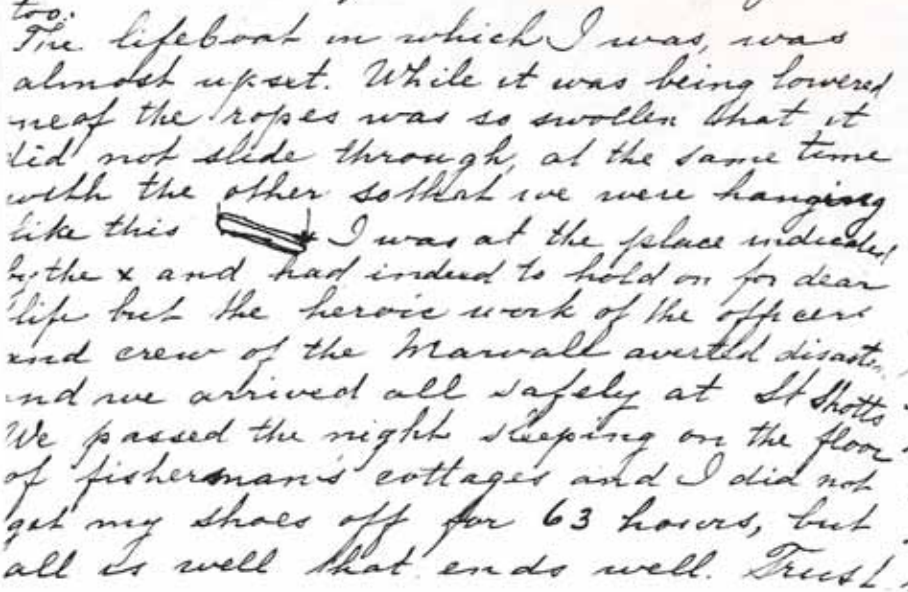 too.
The lifeboat in which I was, was
almost upset. While it was being lowered
ne of the ropes was so swollen that it
did not slide through, at the same time
with the other sothat we were hanging
like this x I was at the place indicated
by the x and had indeed to hold on for dear
life but the heroic work of the officers
and crew of the Marvall averted disaster,
and we arrived all safely at St Shotts.
We passed the night sleeping on the floor
of fisherman's cottages and I did not
get my shoes off for 63 hours, but
all is well that ends well. Trust